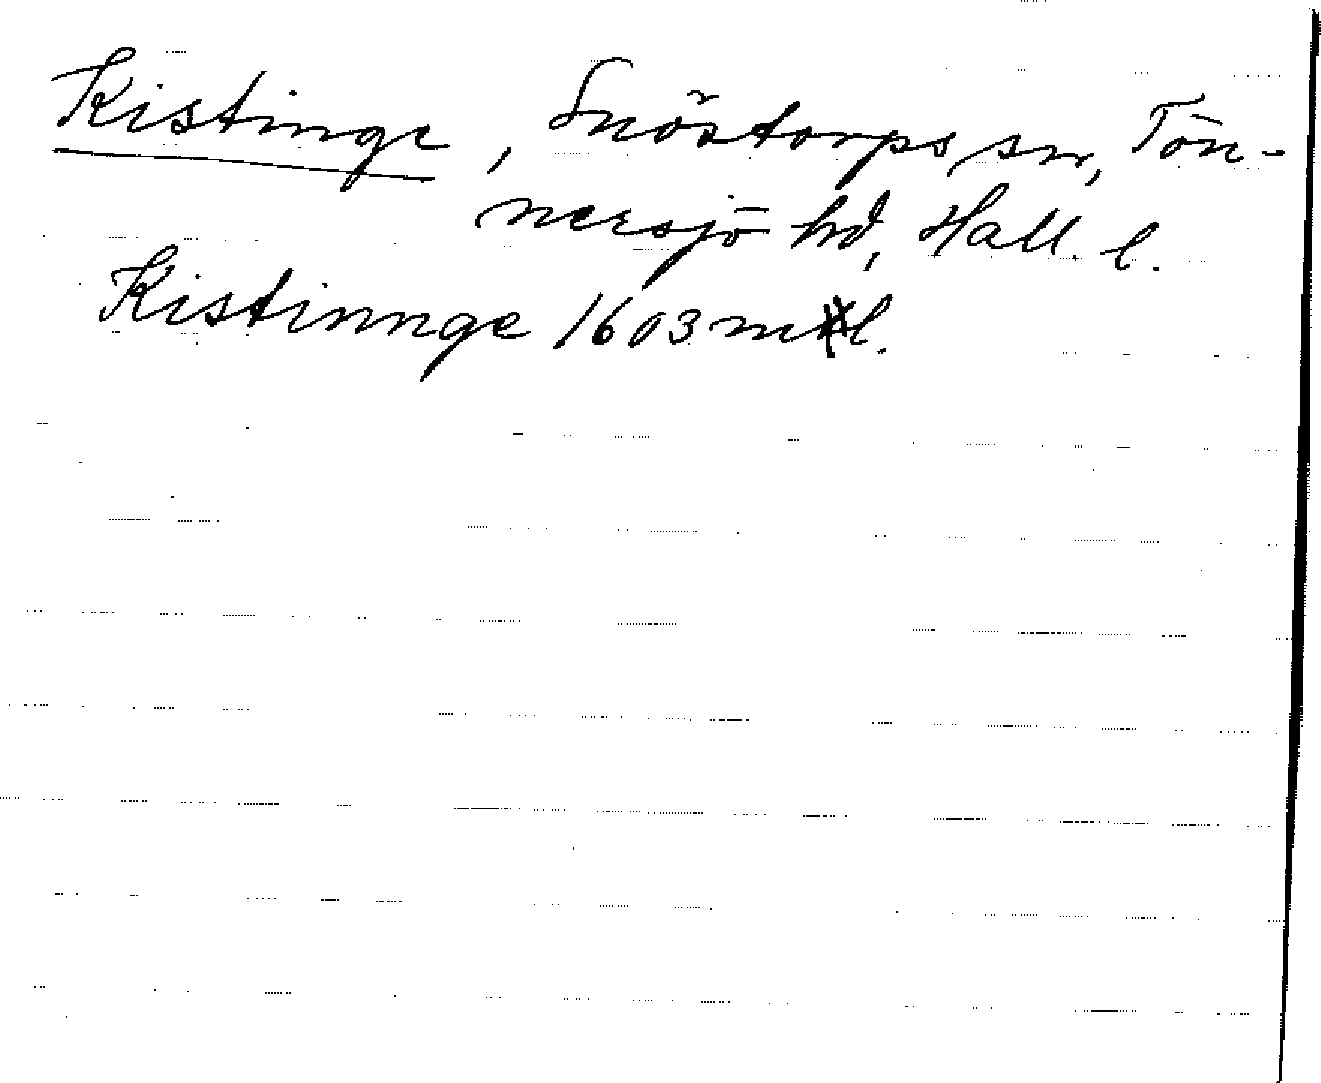 Kistinge, Snöstorps sn, Tön-
nersjö hd, Hall. l.
Kistinnge 1603 ml.